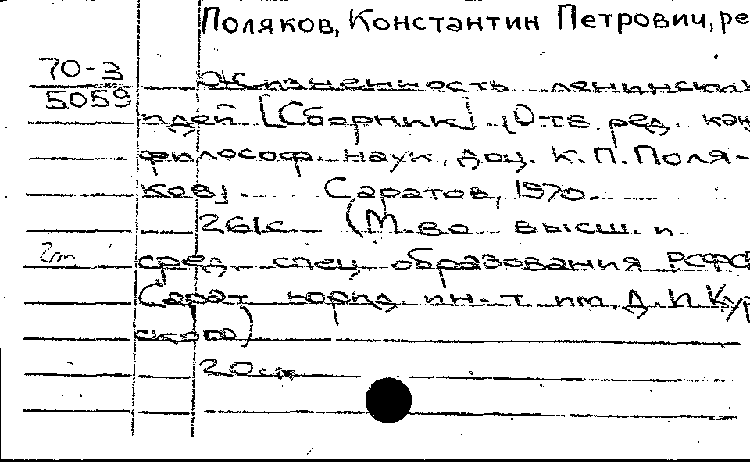 Поляков, Константин Петрович, ре
70-3
5059
Жизненность ленинских
идей [Сборник] [Отв. ред. кан
философ. наук, доц. К. П. Поля-
ков]. Саратов, 1970.
261с. (М-во высш. и
2m
сред. спец. образования РСФСР
Сарат. юрид. ин-т им. Д. И. Кур
ского)
20см